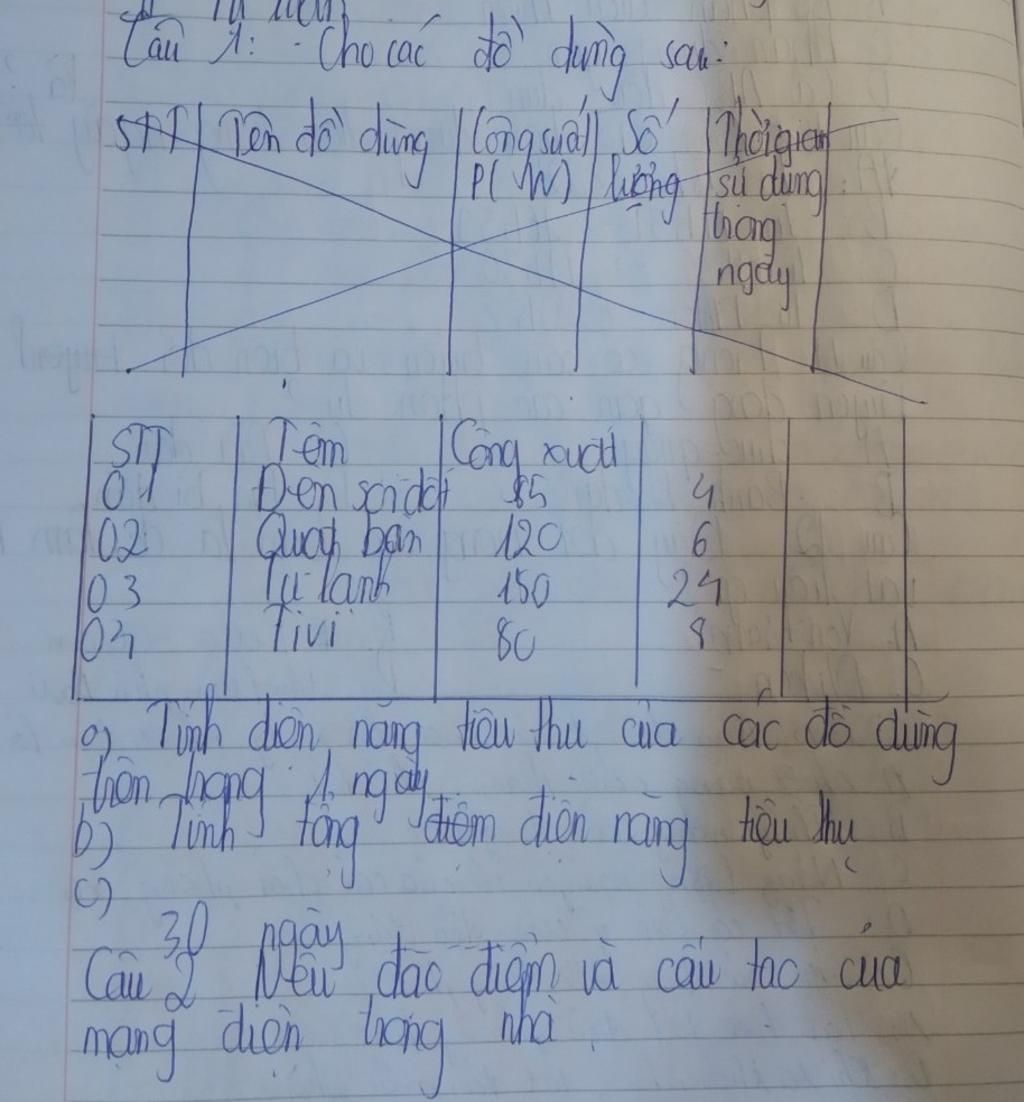 Câu 1: - Cho các đồ dùng sau:
STT Tên đồ dùng Công suất Số Thời gian
P(W) lượng sử dụng
trong
ngày
STT Têm Công xuất
01 Đèn sợi đốt 4
02 Quạt bàn 120 6
03 Tủ lạnh 150 24
04 Tivi 80 8
a) Tính điện năng tiêu thụ của các đồ dùng
trên trong 1 ngày
b) Tính tổng điêm điện năng tiêu thụ
c)
30 ngày
Câu 2 Nêu đăc điểm và cấu tạo của
mạng điện trong nhà